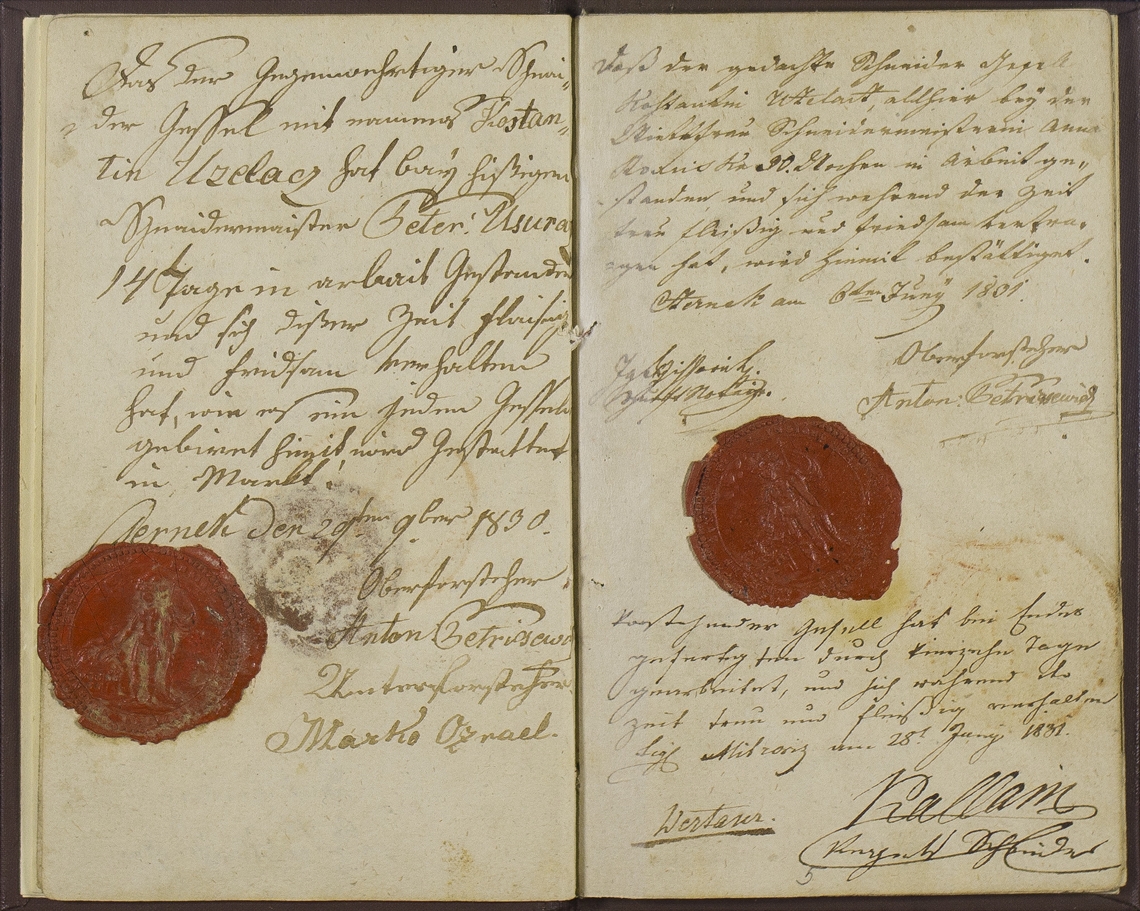 Das der Gegenwehrtiger Schnei-
der Gessel mit nammes Kostan-
tin Uzelacz hat bay hisigen
Schneidermaister Peter: Usura
14 Tage in arbait Gestanden
und sich diser Zeit flaisig
und fridsam verhalten
hat, wie es ein jeden Gesselen
gebiret himit wird Gestattet
in Markt
Cernek den 29ten 9ber 1830.
Oberforsteher
Anton Petrisewi
Unterforsteher
Marko Ozrael.
Daß der gedachte Schneider Gesell
Kostantin Utzelatz, allhier bey der
Schneidermeisterin Anna
30. Wochen in Arbeit ge-
standen und sich wehrend der Zeit
treu fleißig und friedsam betra-
gen hat, wird hiemit bestättiget.
Cerneck am 6ten Juny 1831.
Oberforsteher
Anton: Petrisewich
Vorstehender Gesell hat bei Endes
gefertigten durch vierzehn Tage
gearbeitet, und sich während der
Zeit treu und fleißig verhalten
Sig Mitroviz am 28t Juny 1831.
Kallain
Schneider
5